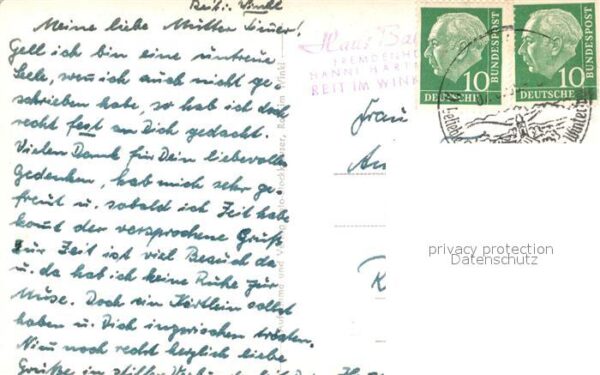 Reit i. Winkl
Meine liebe Mutter !
Gell ich bin eine untreue
Seele, wenn ich auch nicht ge-
schrieben habe, so hab ich doch
recht fest an Dich gedacht.
Vielen Dank für Dein liebevolles
Gedenken, hab mich sehr ge-
freut u. sobald ich Zeit habe
kommt der versprochene Gruß
Zur Zeit ist viel Besuch da
u. da hab ich keine Ruhe zur
Muse. Doch ein Kärtlein sollst
haben u. Dich inzwischen trösten.
Nimm noch recht herzlich liebe
Grüße in stiller
Haus Ba
FREMDENH
HANNI HART
REIT IM WINK
Frau
An
R
10
DEUTSCHE
BUNDESPOST
10
DEUTSCHE
BUNDESPOST
Winter
und Verlag
Reit im Winkl
privacy protection
Datenschutz